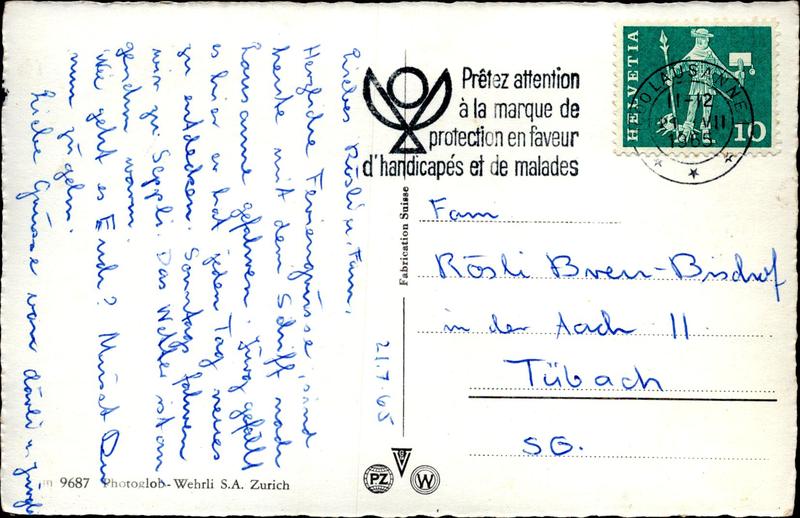 Liebes Rösli u. Fam.
Herzliche Feriengrüsse, sind
heute mit dem Schiff nach
Lausanne gefahren. Jürg gefällt
es hier er hat jeden Tag neues
zu entdecken. Sonntags fahren
wir zu Seppli. Das Wetter ist an
genehm warm.
Wie geht es Euch? Müsst Du
nun
Liebe Grüsse von u. Jürg
21.7.65
9687 Photoglob-Wehrli S.A. Zurich
Fabrication Suisse
PZ
W
Prêtez attention
à la marque de
protection en faveur
d'handicapés et de malades
HELVETIA
10
LAUSANNE
11-12
VII
1965
Fam
Rösli Breu-Bischof
in der Aach 11
Tübach
SG.